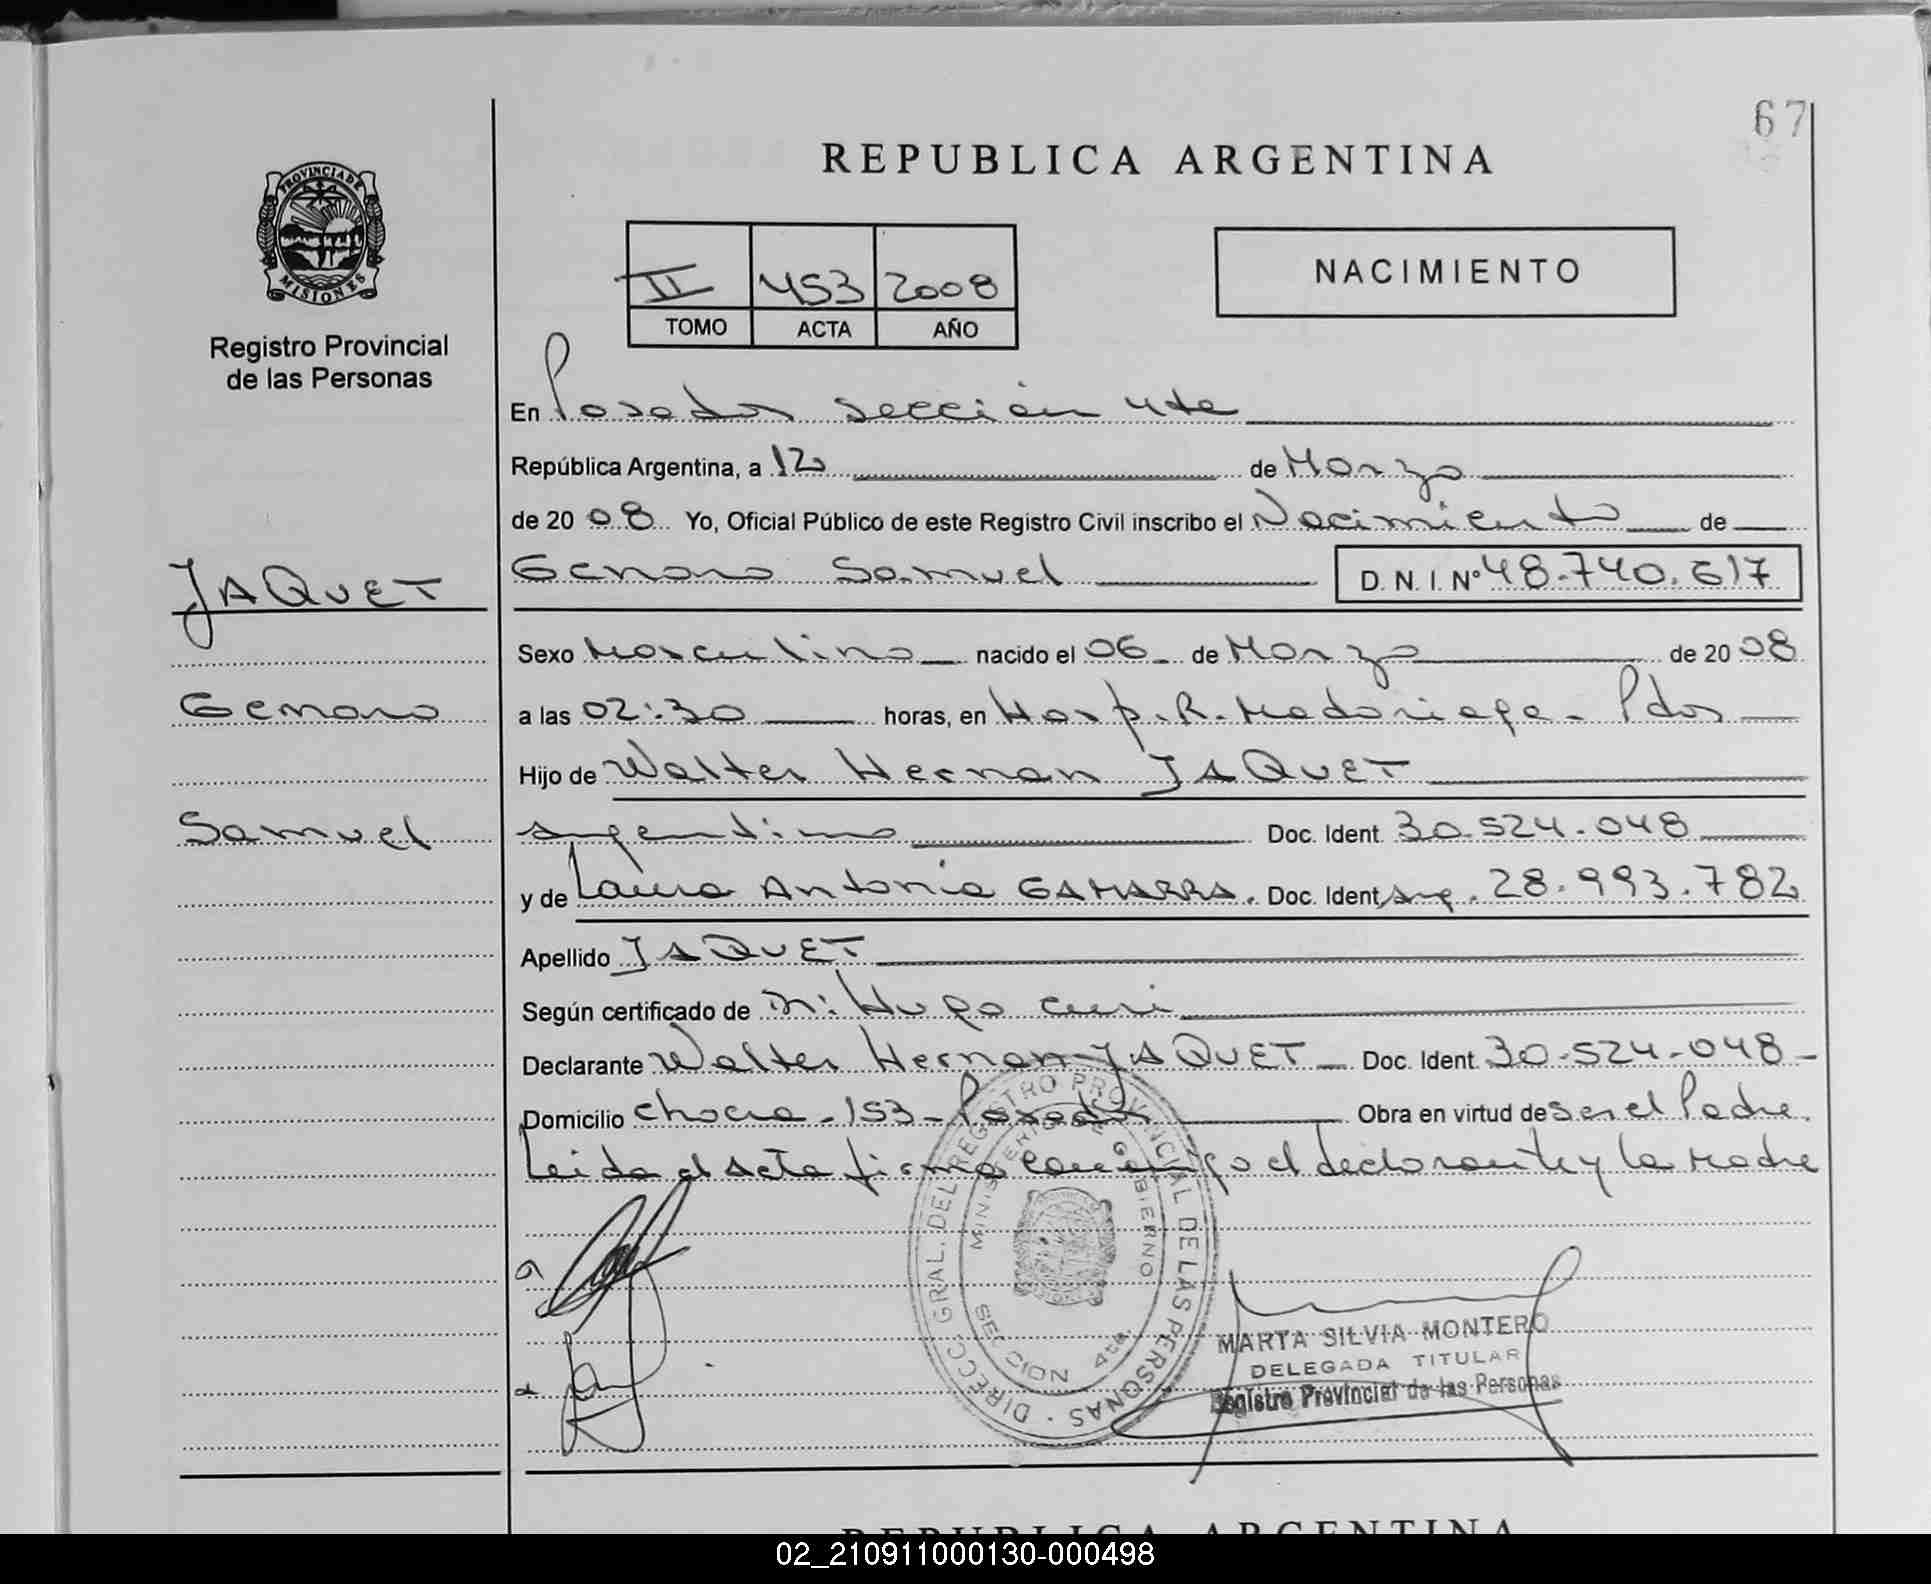 67
REPUBLICA ARGENTINA
PROVINCIA DE
MISIONES
Registro Provincial
de las Personas
II 453 2008
TOMO ACTA AÑO
NACIMIENTO
En Posadas sección 4ta
República Argentina, a 12 de Marzo
de 20 08 Yo, Oficial Público de este Registro Civil inscribo el Nacimiento de
JAQUET
Genaro Samuel D.N.I. Nº 48.740.617
Sexo Masculino nacido el 06 de Marzo de 20 08
Genaro
a las 02:30 horas, en Hosp. R. Madariaga - Pdas
Hijo de Walter Hernan JAQUET
Samuel
argentino Doc. Ident. 30.524.048
y de Laura Antonia GAMARRA. Doc. Ident. Arg. 28.993.782
Apellido JAQUET
Según certificado de Dr: Hugo Curi
Declarante Walter Hernan JAQUET - Doc. Ident. 30.524.048 -
Domicilio Chacra - 153 - Posadas Obra en virtud de ser el Padre.
Leida el Acta firma conmigo el declarante y la Madre
DIRECC. GRAL. DEL REGISTRO PROVINCIAL DE LAS PERSONAS
MINISTERIO DE GOBIERNO
SECCION 4ta.
MARTA SILVIA MONTERO
DELEGADA TITULAR
Registro Provincial de las Personas
REPUBLICA ARGENTINA
02_210911000130-000498